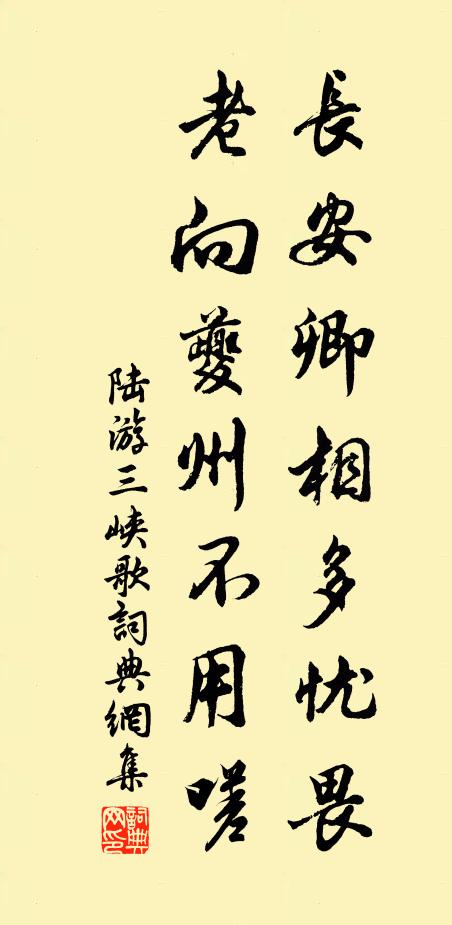 長安卿相多忧畏
老向夔州不用嗟
陆游三峡歌詞典網集
詞典网印